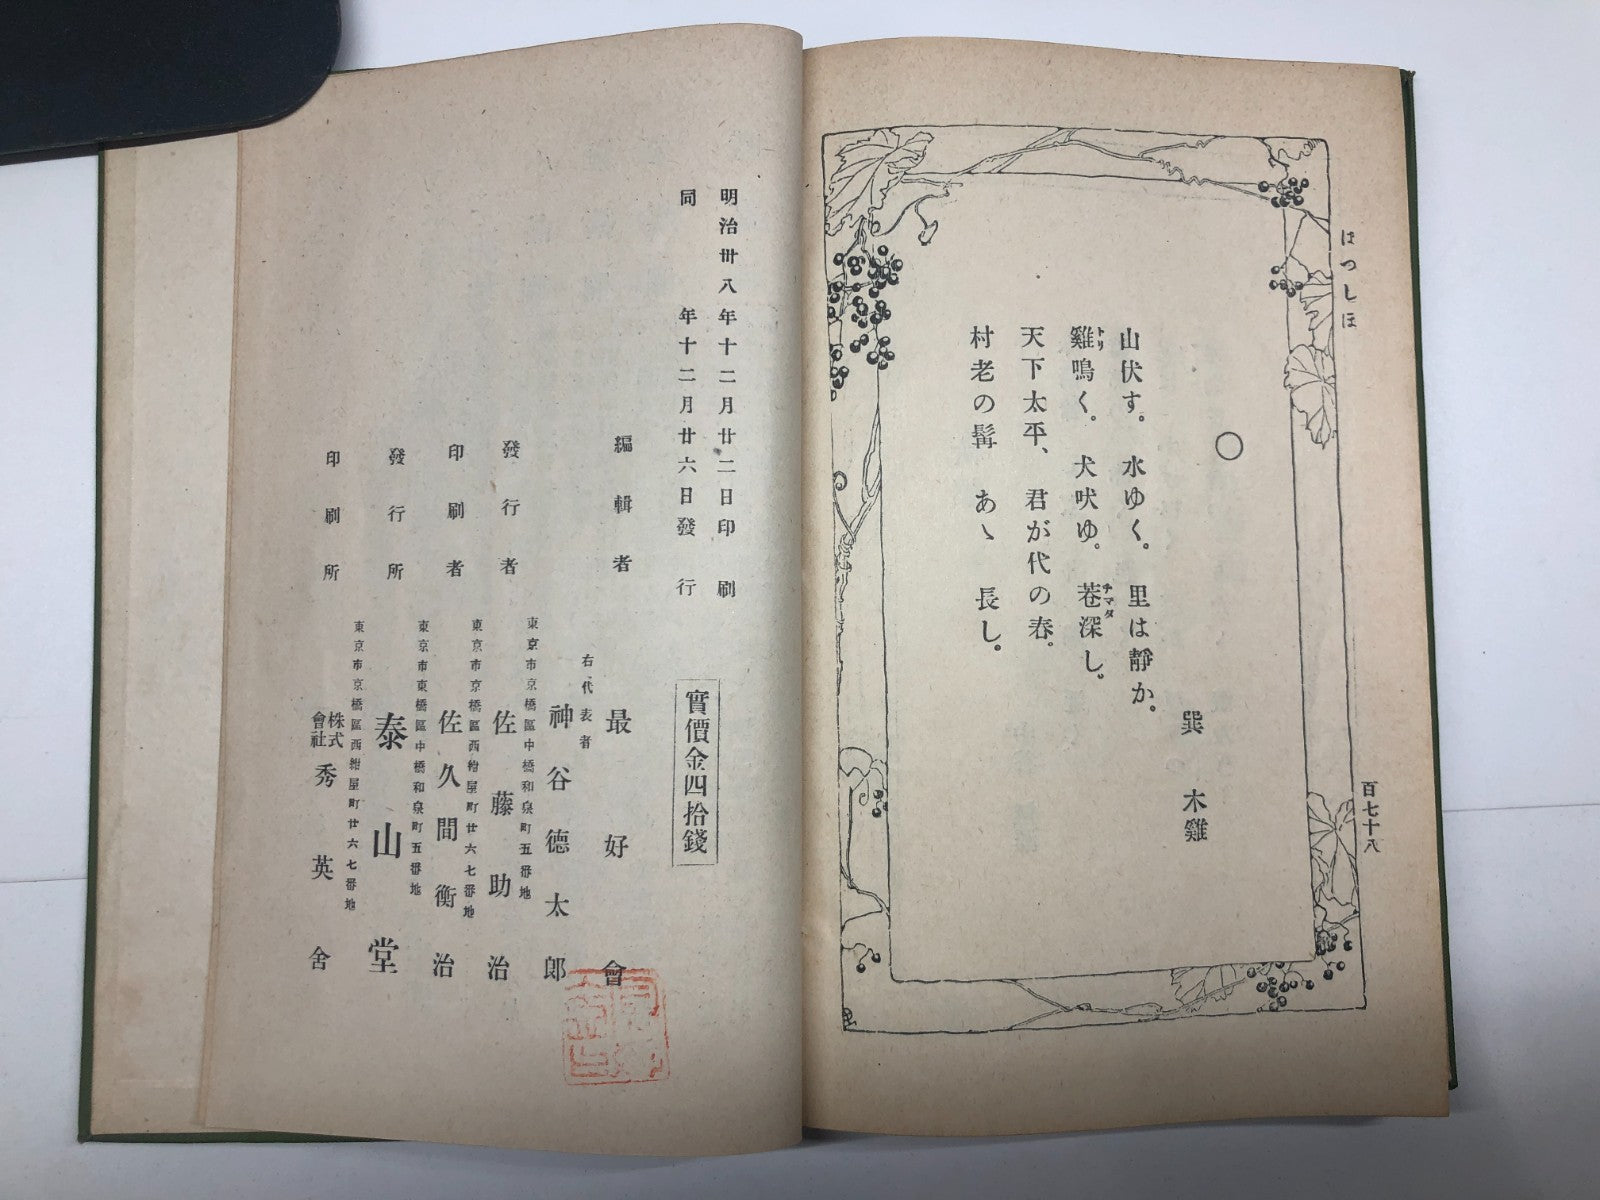 はつしほ
百七十八
○
巽 木雞
山伏す。水ゆく。里は靜か。
雞鳴く。犬吠ゆ。巷深し。
トリ
チマタ
天下太平、君が代の春。
村老の髯 あゝ 長し。
明治卅八年十二月廿二日印刷
同 年十二月廿六日發行
實價金四拾錢
編輯者 最好會
右代表者 神谷德太郎
東京市京橋區中橋和泉町五番地
發行者 佐藤助治
東京市京橋區西紺屋町廿六七番地
印刷者 佐久間衡治
東京市東橋區中橋和泉町五番地
發行所 泰山堂
東京市京橋區西紺屋町廿六七番地
印刷所 株式會社 秀英舍